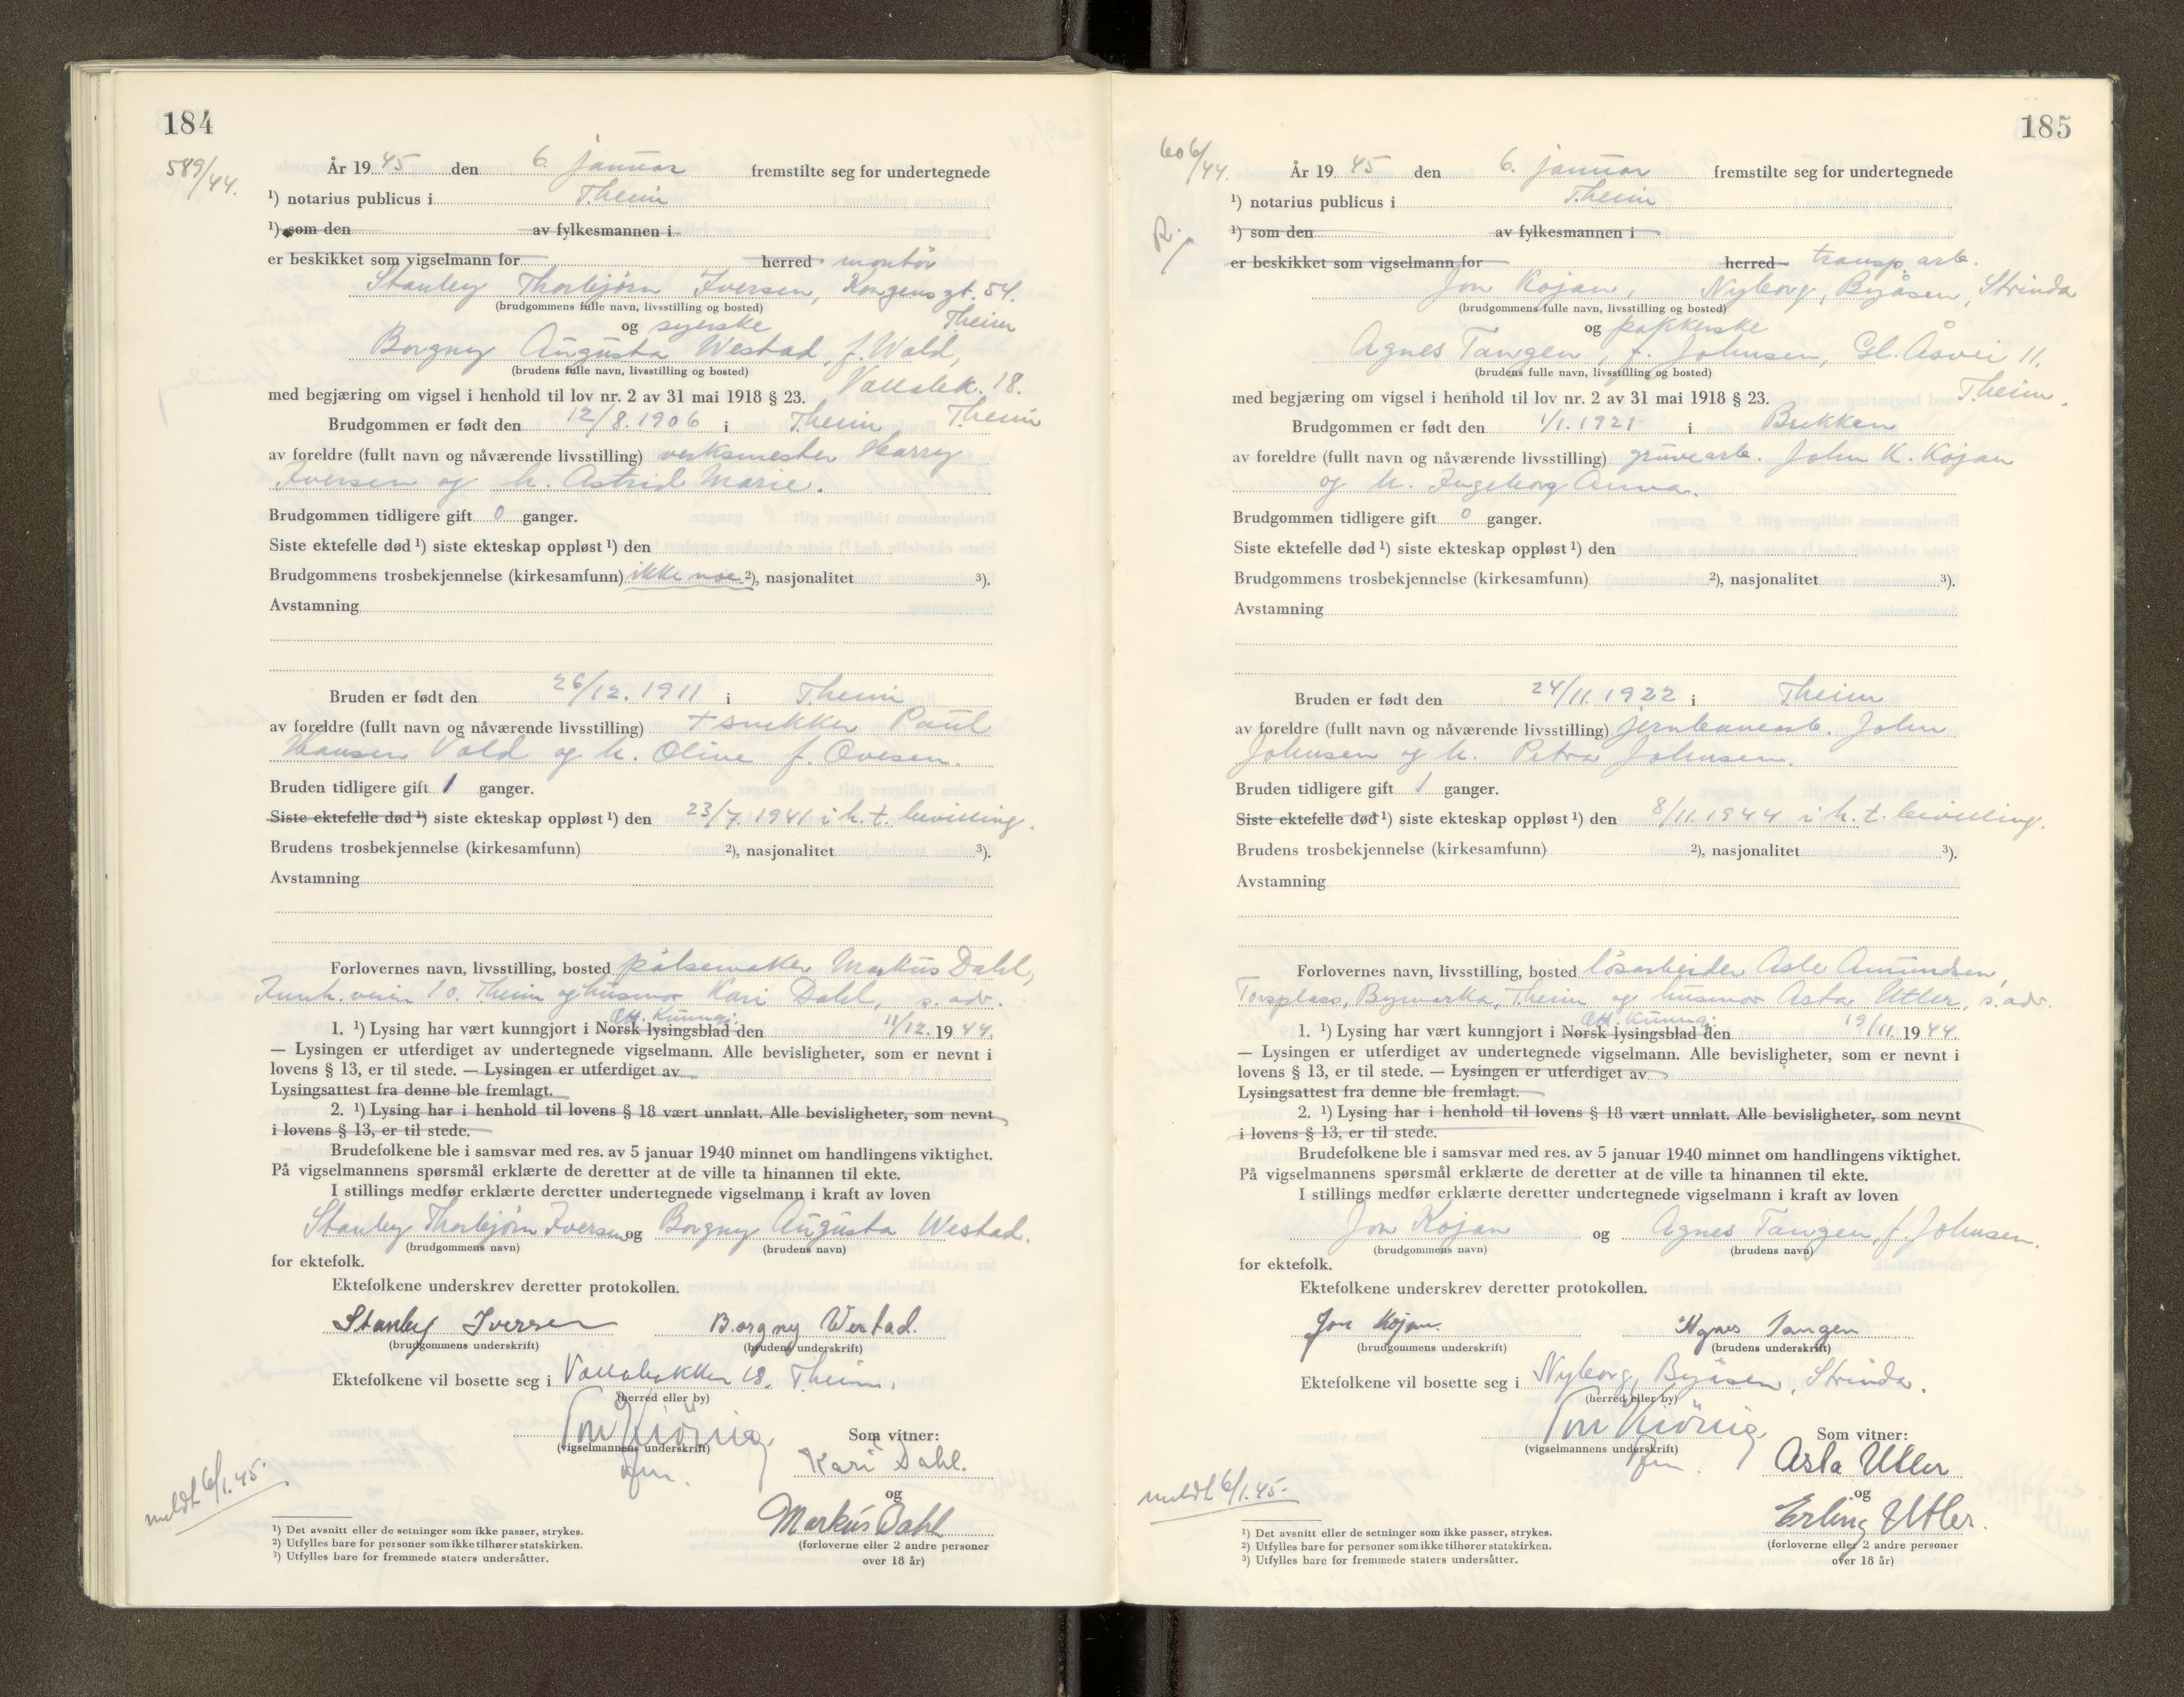 184
589/44.
År 19 45 den 6. januar fremstilte seg for undertegnede
¹) notarius publicus i T.heim
¹) som den av fylkesmannen i
er beskikket som vigselmann for herred montör
Stanley Thorbjörn Iversen, Kongensgt. 54.
(brudgommens fulle navn, livsstilling og bosted) T.heim
og syerske
Borgny Augusta Westad, f. Wold,
(brudens fulle navn, livsstilling og bosted) Vollabk. 18.
med begjæring om vigsel i henhold til lov nr. 2 av 31 mai 1918 § 23. T.heim
Brudgommen er født den 12/8. 1906 i T.heim
av foreldre (fullt navn og nåværende livsstilling) verksmester Harry
Iversen og h. Astrid Marie.
Brudgommen tidligere gift 0 ganger.
Siste ektefelle død ¹) siste ekteskap oppløst ¹) den
Brudgommens trosbekjennelse (kirkesamfunn) ikke noe ²), nasjonalitet ³).
Avstamning
Bruden er født den 26/12. 1911 i T.heim
av foreldre (fullt navn og nåværende livsstilling) + snekker Paul
Hansen Vold og h. Oline f. Ovesen.
Bruden tidligere gift 1 ganger.
Siste ektefelle død ¹) siste ekteskap oppløst ¹) den 23/7. 1941 i h. t. bevilling.
Brudens trosbekjennelse (kirkesamfunn) ²), nasjonalitet ³).
Avstamning
Forlovernes navn, livsstilling, bosted pölsemaker Markus Dahl,
Innh. veien 10. T.heim og husmor Kari Dahl, s. adr.
off. kunngj.
1. ¹) Lysing har vært kunngjort i Norsk lysingsblad den 11/12. 19 44.
— Lysingen er utferdiget av undertegnede vigselmann. Alle bevisligheter, som er nevnt i
lovens § 13, er til stede. — Lysingen er utferdiget av
Lysingsattest fra denne ble fremlagt.
2. ¹) Lysing har i henhold til lovens § 18 vært unnlatt. Alle bevisligheter, som nevnt
i lovens § 13, er til stede.
Brudefolkene ble i samsvar med res. av 5 januar 1940 minnet om handlingens viktighet.
På vigselmannens spørsmål erklærte de deretter at de ville ta hinannen til ekte.
I stillings medfør erklærte deretter undertegnede vigselmann i kraft av loven
Stanley Thorbjörn Iversen og Borgny Augusta Westad.
(brudgommens navn) (brudens navn)
for ektefolk.
Ektefolkene underskrev deretter protokollen.
Stanley Iversen Borgny Westad.
(brudgommens underskrift) (brudens underskrift)
Ektefolkene vil bosette seg i Vollabakken 18. T.heim.
(herred eller by)
Som vitner:
(vigselmannens underskrift)
Kari Dahl.
og
meldt 6/1. 45.
Markus Dahl
(forloverne eller 2 andre personer
over 18 år)
¹) Det avsnitt eller de setninger som ikke passer, strykes.
²) Utfylles bare for personer som ikke tilhører statskirken.
³) Utfylles bare for fremmede staters undersåtter.
185
606/44.
År 19 45 den 6. januar fremstilte seg for undertegnede
¹) notarius publicus i T.heim
¹) som den av fylkesmannen i
er beskikket som vigselmann for herred transp. arb.
Jon Kojan, Nyborg, Byåsen, Strinda
(brudgommens fulle navn, livsstilling og bosted)
og pakkerske
Agnes Tangen, f. Johnsen, Gl. Åsvei 11.
(brudens fulle navn, livsstilling og bosted) T.heim.
med begjæring om vigsel i henhold til lov nr. 2 av 31 mai 1918 § 23.
Brudgommen er født den 1/1. 1921 i Brekken
av foreldre (fullt navn og nåværende livsstilling) gruvearb. John K. Kojan
og h. Ingeborg Anna.
Brudgommen tidligere gift 0 ganger.
Siste ektefelle død ¹) siste ekteskap oppløst ¹) den
Brudgommens trosbekjennelse (kirkesamfunn) ²), nasjonalitet ³).
Avstamning
Bruden er født den 24/11. 1922 i T.heim
av foreldre (fullt navn og nåværende livsstilling) jernbanearb. John
Johnsen og h. Petra Johnsen.
Bruden tidligere gift 1 ganger.
Siste ektefelle død ¹) siste ekteskap oppløst ¹) den 8/11. 1944 i h. t. bevilling.
Brudens trosbekjennelse (kirkesamfunn) ²), nasjonalitet ³).
Avstamning
Forlovernes navn, livsstilling, bosted lösarbeider Asle Amundsen,
Torsplass, Bymarka, T.heim og husmor Asta Utler, s. adr.
off. kunngj.
1. ¹) Lysing har vært kunngjort i Norsk lysingsblad den 19/11. 19 44.
— Lysingen er utferdiget av undertegnede vigselmann. Alle bevisligheter, som er nevnt i
lovens § 13, er til stede. — Lysingen er utferdiget av
Lysingsattest fra denne ble fremlagt.
2. ¹) Lysing har i henhold til lovens § 18 vært unnlatt. Alle bevisligheter, som nevnt
i lovens § 13, er til stede.
Brudefolkene ble i samsvar med res. av 5 januar 1940 minnet om handlingens viktighet.
På vigselmannens spørsmål erklærte de deretter at de ville ta hinannen til ekte.
I stillings medfør erklærte deretter undertegnede vigselmann i kraft av loven
Jon Kojan og Agnes Tangen, f. Johnsen.
(brudgommens navn) (brudens navn)
for ektefolk.
Ektefolkene underskrev deretter protokollen.
Jon Kojan. Agnes Tangen
(brudgommens underskrift) (brudens underskrift)
Ektefolkene vil bosette seg i Nyborg, Byåsen, Strinda.
(herred eller by)
Som vitner:
(vigselmannens underskrift)
Asta Utler
og
meldt 6/1. 45.
Erling Utler.
(forloverne eller 2 andre personer
over 18 år)
¹) Det avsnitt eller de setninger som ikke passer, strykes.
²) Utfylles bare for personer som ikke tilhører statskirken.
³) Utfylles bare for fremmede staters undersåtter.